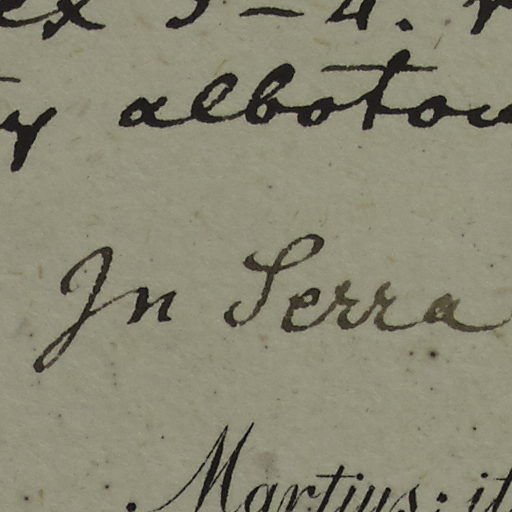 ex 3-4.
albotom
In Serra
. Martius: it